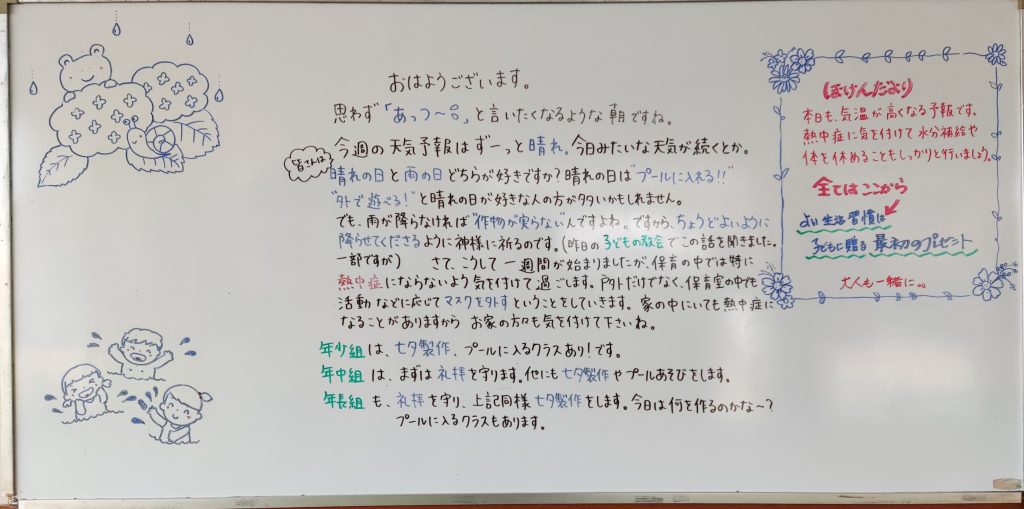 おはようございます。
思わず「あっつ〜。」と言いたくなるような朝ですね。
今週の天気予報はずーっと晴れ。今日みたいな天気が続くとか。
皆さんは
晴れの日と雨の日どちらが好きですか?晴れの日は"プールに入れる!!"
"外で遊べる!"と晴れの日が好きな人の方が多いかもしれません。
でも、雨が降らなければ"作物が実らない"んですよね。ですから、ちょうどよいように
降らせてくださるように神様に祈るのです。(昨日の子どもの教会でこの話を聞きました。
一部ですが) さて、こうして一週間が始まりましたが、保育の中では特に
熱中症にならないよう気を付けて過ごします。戸外だけでなく、保育室の中でも
活動などに応じてマスクを外すということをしていきます。家の中にいても熱中症に
なることがありますから お家の方々も気を付けて下さいね。
年少組は、七夕製作、プールに入るクラスあり!です。
年中組は、まずは礼拝を守ります。他にも七夕製作やプールあそびをします。
年長組も、礼拝を守り、上記同様七夕製作をします。今日は何を作るのかな〜?
プールに入るクラスもあります。
ほけんだより
本日も、気温が高くなる予報です。
熱中症に気を付けて水分補給や
体を休めることもしっかりと行いましょう。
全てはここから
よい生活習慣は
子どもに贈る最初のプレゼント
大人も一緒に。。